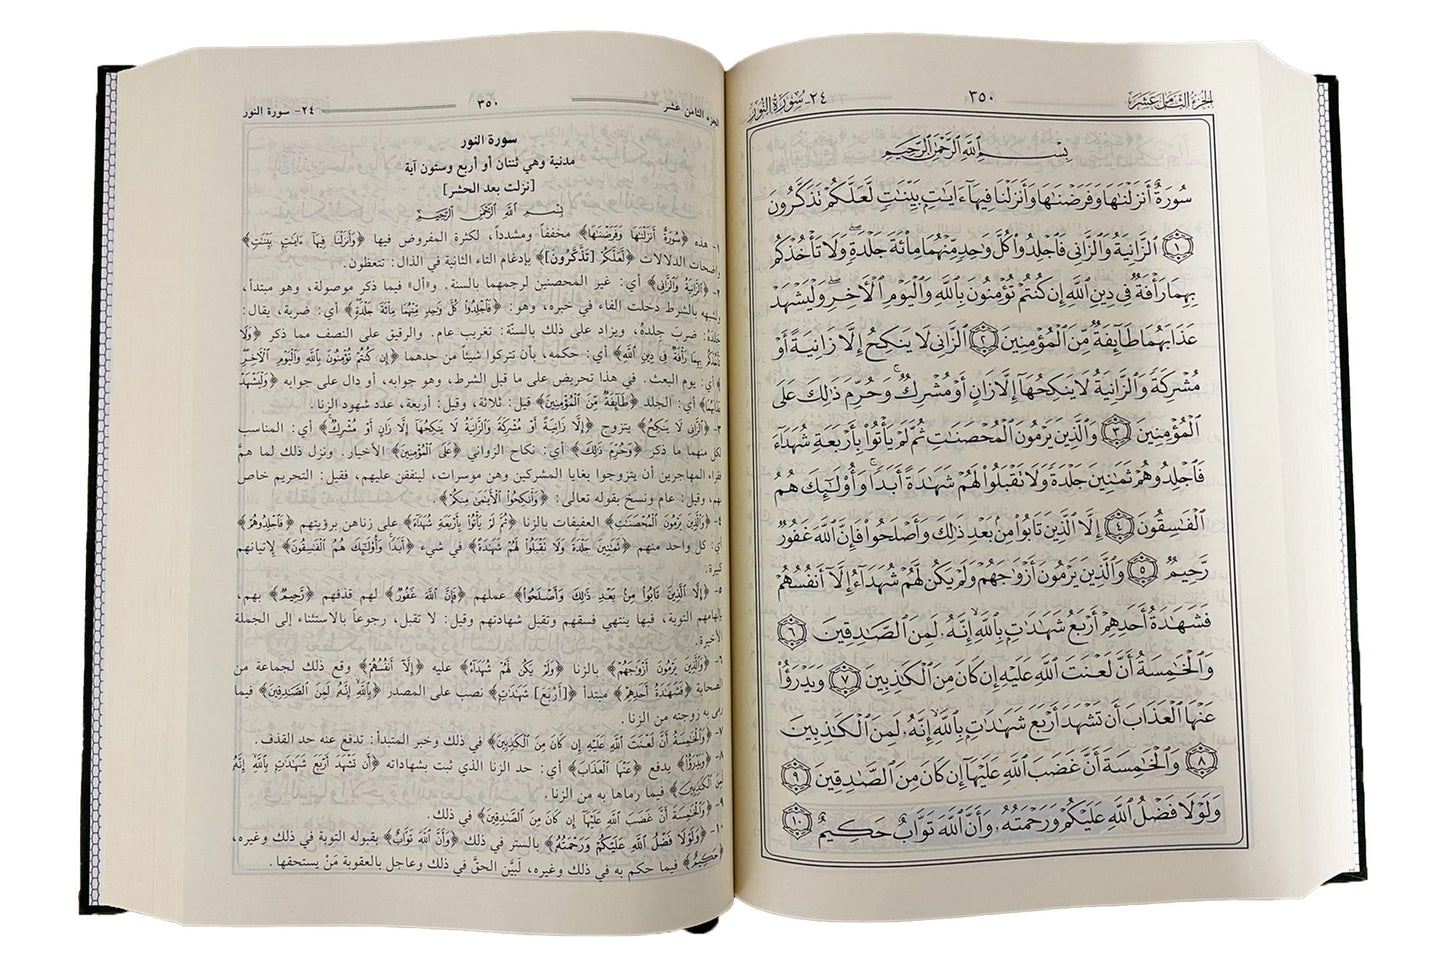 الجزء الثامن عشر ٣٥٠ ٢٤- سورة النور
بِسْمِ ٱللَّهِ ٱلرَّحْمَٰنِ ٱلرَّحِيمِ
سُورَةٌ أَنزَلْنَٰهَا وَفَرَضْنَٰهَا وَأَنزَلْنَا فِيهَآ ءَايَٰتٍۭ بَيِّنَٰتٍ لَّعَلَّكُمْ تَذَكَّرُونَ
﴿١﴾ ٱلزَّانِيَةُ وَٱلزَّانِى فَٱجْلِدُوا۟ كُلَّ وَٰحِدٍ مِّنْهُمَا مِا۟ئَةَ جَلْدَةٍ ۖ وَلَا تَأْخُذْكُم
بِهِمَا رَأْفَةٌ فِى دِينِ ٱللَّهِ إِن كُنتُمْ تُؤْمِنُونَ بِٱللَّهِ وَٱلْيَوْمِ ٱلْءَاخِرِ ۖ وَلْيَشْهَدْ
عَذَابَهُمَا طَآئِفَةٌ مِّنَ ٱلْمُؤْمِنِينَ ﴿٢﴾ ٱلزَّانِى لَا يَنكِحُ إِلَّا زَانِيَةً أَوْ
مُشْرِكَةً وَٱلزَّانِيَةُ لَا يَنكِحُهَآ إِلَّا زَانٍ أَوْ مُشْرِكٌ ۚ وَحُرِّمَ ذَٰلِكَ عَلَى
ٱلْمُؤْمِنِينَ ﴿٣﴾ وَٱلَّذِينَ يَرْمُونَ ٱلْمُحْصَنَٰتِ ثُمَّ لَمْ يَأْتُوا۟ بِأَرْبَعَةِ شُهَدَآءَ
فَٱجْلِدُوهُمْ ثَمَٰنِينَ جَلْدَةً وَلَا تَقْبَلُوا۟ لَهُمْ شَهَٰدَةً أَبَدًا ۚ وَأُو۟لَٰٓئِكَ هُمُ
ٱلْفَٰسِقُونَ ﴿٤﴾ إِلَّا ٱلَّذِينَ تَابُوا۟ مِنۢ بَعْدِ ذَٰلِكَ وَأَصْلَحُوا۟ فَإِنَّ ٱللَّهَ غَفُورٌ
رَّحِيمٌ ﴿٥﴾ وَٱلَّذِينَ يَرْمُونَ أَزْوَٰجَهُمْ وَلَمْ يَكُن لَّهُمْ شُهَدَآءُ إِلَّآ أَنفُسُهُمْ
فَشَهَٰدَةُ أَحَدِهِمْ أَرْبَعُ شَهَٰدَٰتٍۭ بِٱللَّهِ ۙ إِنَّهُۥ لَمِنَ ٱلصَّٰدِقِينَ ﴿٦﴾
وَٱلْخَٰمِسَةُ أَنَّ لَعْنَتَ ٱللَّهِ عَلَيْهِ إِن كَانَ مِنَ ٱلْكَٰذِبِينَ ﴿٧﴾ وَيَدْرَؤُا۟
عَنْهَا ٱلْعَذَابَ أَن تَشْهَدَ أَرْبَعَ شَهَٰدَٰتٍۭ بِٱللَّهِ ۙ إِنَّهُۥ لَمِنَ ٱلْكَٰذِبِينَ
﴿٨﴾ وَٱلْخَٰمِسَةَ أَنَّ غَضَبَ ٱللَّهِ عَلَيْهَآ إِن كَانَ مِنَ ٱلصَّٰدِقِينَ ﴿٩﴾
وَلَوْلَا فَضْلُ ٱللَّهِ عَلَيْكُمْ وَرَحْمَتُهُۥ وَأَنَّ ٱللَّهَ تَوَّابٌ حَكِيمٌ ﴿١٠﴾
الجزء الثامن عشر ٣٥٠ ٢٤- سورة النور
سورة النور
مدنية وهي ثنتان أو أربع وستون آية
[نزلت بعد الحشر]
بِسْمِ ٱللَّهِ ٱلرَّحْمَٰنِ ٱلرَّحِيمِ
١- هذه ﴿سُورَةٌ أَنزَلْنَٰهَا وَفَرَضْنَٰهَا﴾ مخففاً ومشدداً، لكثرة المفروض فيها ﴿وَأَنزَلْنَا فِيهَآ ءَايَٰتٍۭ بَيِّنَٰتٍ﴾
واضحات الدلالات ﴿لَّعَلَّكُمْ [تَذَّكَّرُونَ]﴾ بإدغام التاء الثانية في الذال: تتعظون.
٢- ﴿ٱلزَّانِيَةُ وَٱلزَّانِى﴾ أي: غير المحصنين لرجمهما بالسنة. و«أل» فيما ذكر موصولة، وهو مبتدأ،
ولشبهه بالشرط دخلت الفاء في خبره، وهو: ﴿فَٱجْلِدُوا۟ كُلَّ وَٰحِدٍ مِّنْهُمَا مِا۟ئَةَ جَلْدَةٍ﴾ أي: ضربة، يقال:
جَلَدَهُ: ضربَ جِلدهُ، ويزاد على ذلك بالسنّة: تغريب عام. والرقيق على النصف مما ذكر ﴿وَلَا
تَأْخُذْكُم بِهِمَا رَأْفَةٌ فِى دِينِ ٱللَّهِ﴾ أي: حكمه، بأن تتركوا شيئاً من حدهما ﴿إِن كُنتُمْ تُؤْمِنُونَ بِٱللَّهِ وَٱلْيَوْمِ ٱلْءَاخِرِ﴾
أي: يوم البعث. في هذا تحريض على ما قبل الشرط، وهو جوابه، أو دال على جوابه ﴿وَلْيَشْهَدْ
عَذَابَهُمَا﴾ أي: الجلد ﴿طَآئِفَةٌ مِّنَ ٱلْمُؤْمِنِينَ﴾ قيل: ثلاثة، وقيل: أربعة، عدد شهود الزنا.
٣- ﴿ٱلزَّانِى لَا يَنكِحُ﴾ يتزوج ﴿إِلَّا زَانِيَةً أَوْ مُشْرِكَةً وَٱلزَّانِيَةُ لَا يَنكِحُهَآ إِلَّا زَانٍ أَوْ مُشْرِكٌ﴾ أي: المناسب
لكل منهما ما ذكر ﴿وَحُرِّمَ ذَٰلِكَ﴾ أي: نكاح الزواني ﴿عَلَى ٱلْمُؤْمِنِينَ﴾ الأخيار. ونزل ذلك لما همَّ
فقراء المهاجرين أن يتزوجوا بغايا المشركين وهن موسرات، لينفقن عليهم، فقيل: التحريم خاص
بهم، وقيل: عام ونسخ بقوله تعالى: ﴿وَأَنكِحُوا۟ ٱلْأَيَٰمَىٰ مِنكُمْ﴾
٤- ﴿وَٱلَّذِينَ يَرْمُونَ ٱلْمُحْصَنَٰتِ﴾ العفيفات بالزنا ﴿ثُمَّ لَمْ يَأْتُوا۟ بِأَرْبَعَةِ شُهَدَآءَ﴾ على زناهن برؤيتهم ﴿فَٱجْلِدُوهُمْ﴾
أي: كل واحد منهم ﴿ثَمَٰنِينَ جَلْدَةً وَلَا تَقْبَلُوا۟ لَهُمْ شَهَٰدَةً﴾ في شيء ﴿أَبَدًا وَأُو۟لَٰٓئِكَ هُمُ ٱلْفَٰسِقُونَ﴾ لإتيانهم
كبيرة.
٥- ﴿إِلَّا ٱلَّذِينَ تَابُوا۟ مِنۢ بَعْدِ ذَٰلِكَ وَأَصْلَحُوا۟﴾ عملهم ﴿فَإِنَّ ٱللَّهَ غَفُورٌ﴾ لهم قذفهم ﴿رَّحِيمٌ﴾ بهم،
بإلهامهم التوبة، فبها ينتهي فسقهم وتقبل شهادتهم وقيل: لا تقبل، رجوعاً بالاستثناء إلى الجملة
الأخيرة.
٦- ﴿وَٱلَّذِينَ يَرْمُونَ أَزْوَٰجَهُمْ﴾ بالزنا ﴿وَلَمْ يَكُن لَّهُمْ شُهَدَآءُ﴾ عليه ﴿إِلَّآ أَنفُسُهُمْ﴾ وقع ذلك لجماعة من
الصحابة ﴿فَشَهَٰدَةُ أَحَدِهِمْ﴾ مبتدأ ﴿[أَرْبَعَ] شَهَٰدَٰتٍ﴾ نصب على المصدر ﴿بِٱللَّهِ إِنَّهُۥ لَمِنَ ٱلصَّٰدِقِينَ﴾ فيما
رمى به زوجته من الزنا.
٧- ﴿وَٱلْخَٰمِسَةُ أَنَّ لَعْنَتَ ٱللَّهِ عَلَيْهِ إِن كَانَ مِنَ ٱلْكَٰذِبِينَ﴾ في ذلك وخبر المبتدأ: تدفع عنه حد القذف.
٨- ﴿وَيَدْرَؤُا۟﴾ يدفع ﴿عَنْهَا ٱلْعَذَابَ﴾ أي: حد الزنا الذي ثبت بشهاداته ﴿أَن تَشْهَدَ أَرْبَعَ شَهَٰدَٰتٍۭ بِٱللَّهِ إِنَّهُۥ
لَمِنَ ٱلْكَٰذِبِينَ﴾ فيما رماها به من الزنا.
٩- ﴿وَٱلْخَٰمِسَةَ أَنَّ غَضَبَ ٱللَّهِ عَلَيْهَآ إِن كَانَ مِنَ ٱلصَّٰدِقِينَ﴾ في ذلك.
١٠- ﴿وَلَوْلَا فَضْلُ ٱللَّهِ عَلَيْكُمْ وَرَحْمَتُهُۥ﴾ بالستر في ذلك ﴿وَأَنَّ ٱللَّهَ تَوَّابٌ﴾ بقبوله التوبة في ذلك وغيره،
﴿حَكِيمٌ﴾ فيما حكم به في ذلك وغيره، لَبَيَّن الحقَّ في ذلك وعاجل بالعقوبة مَنْ يستحقها.